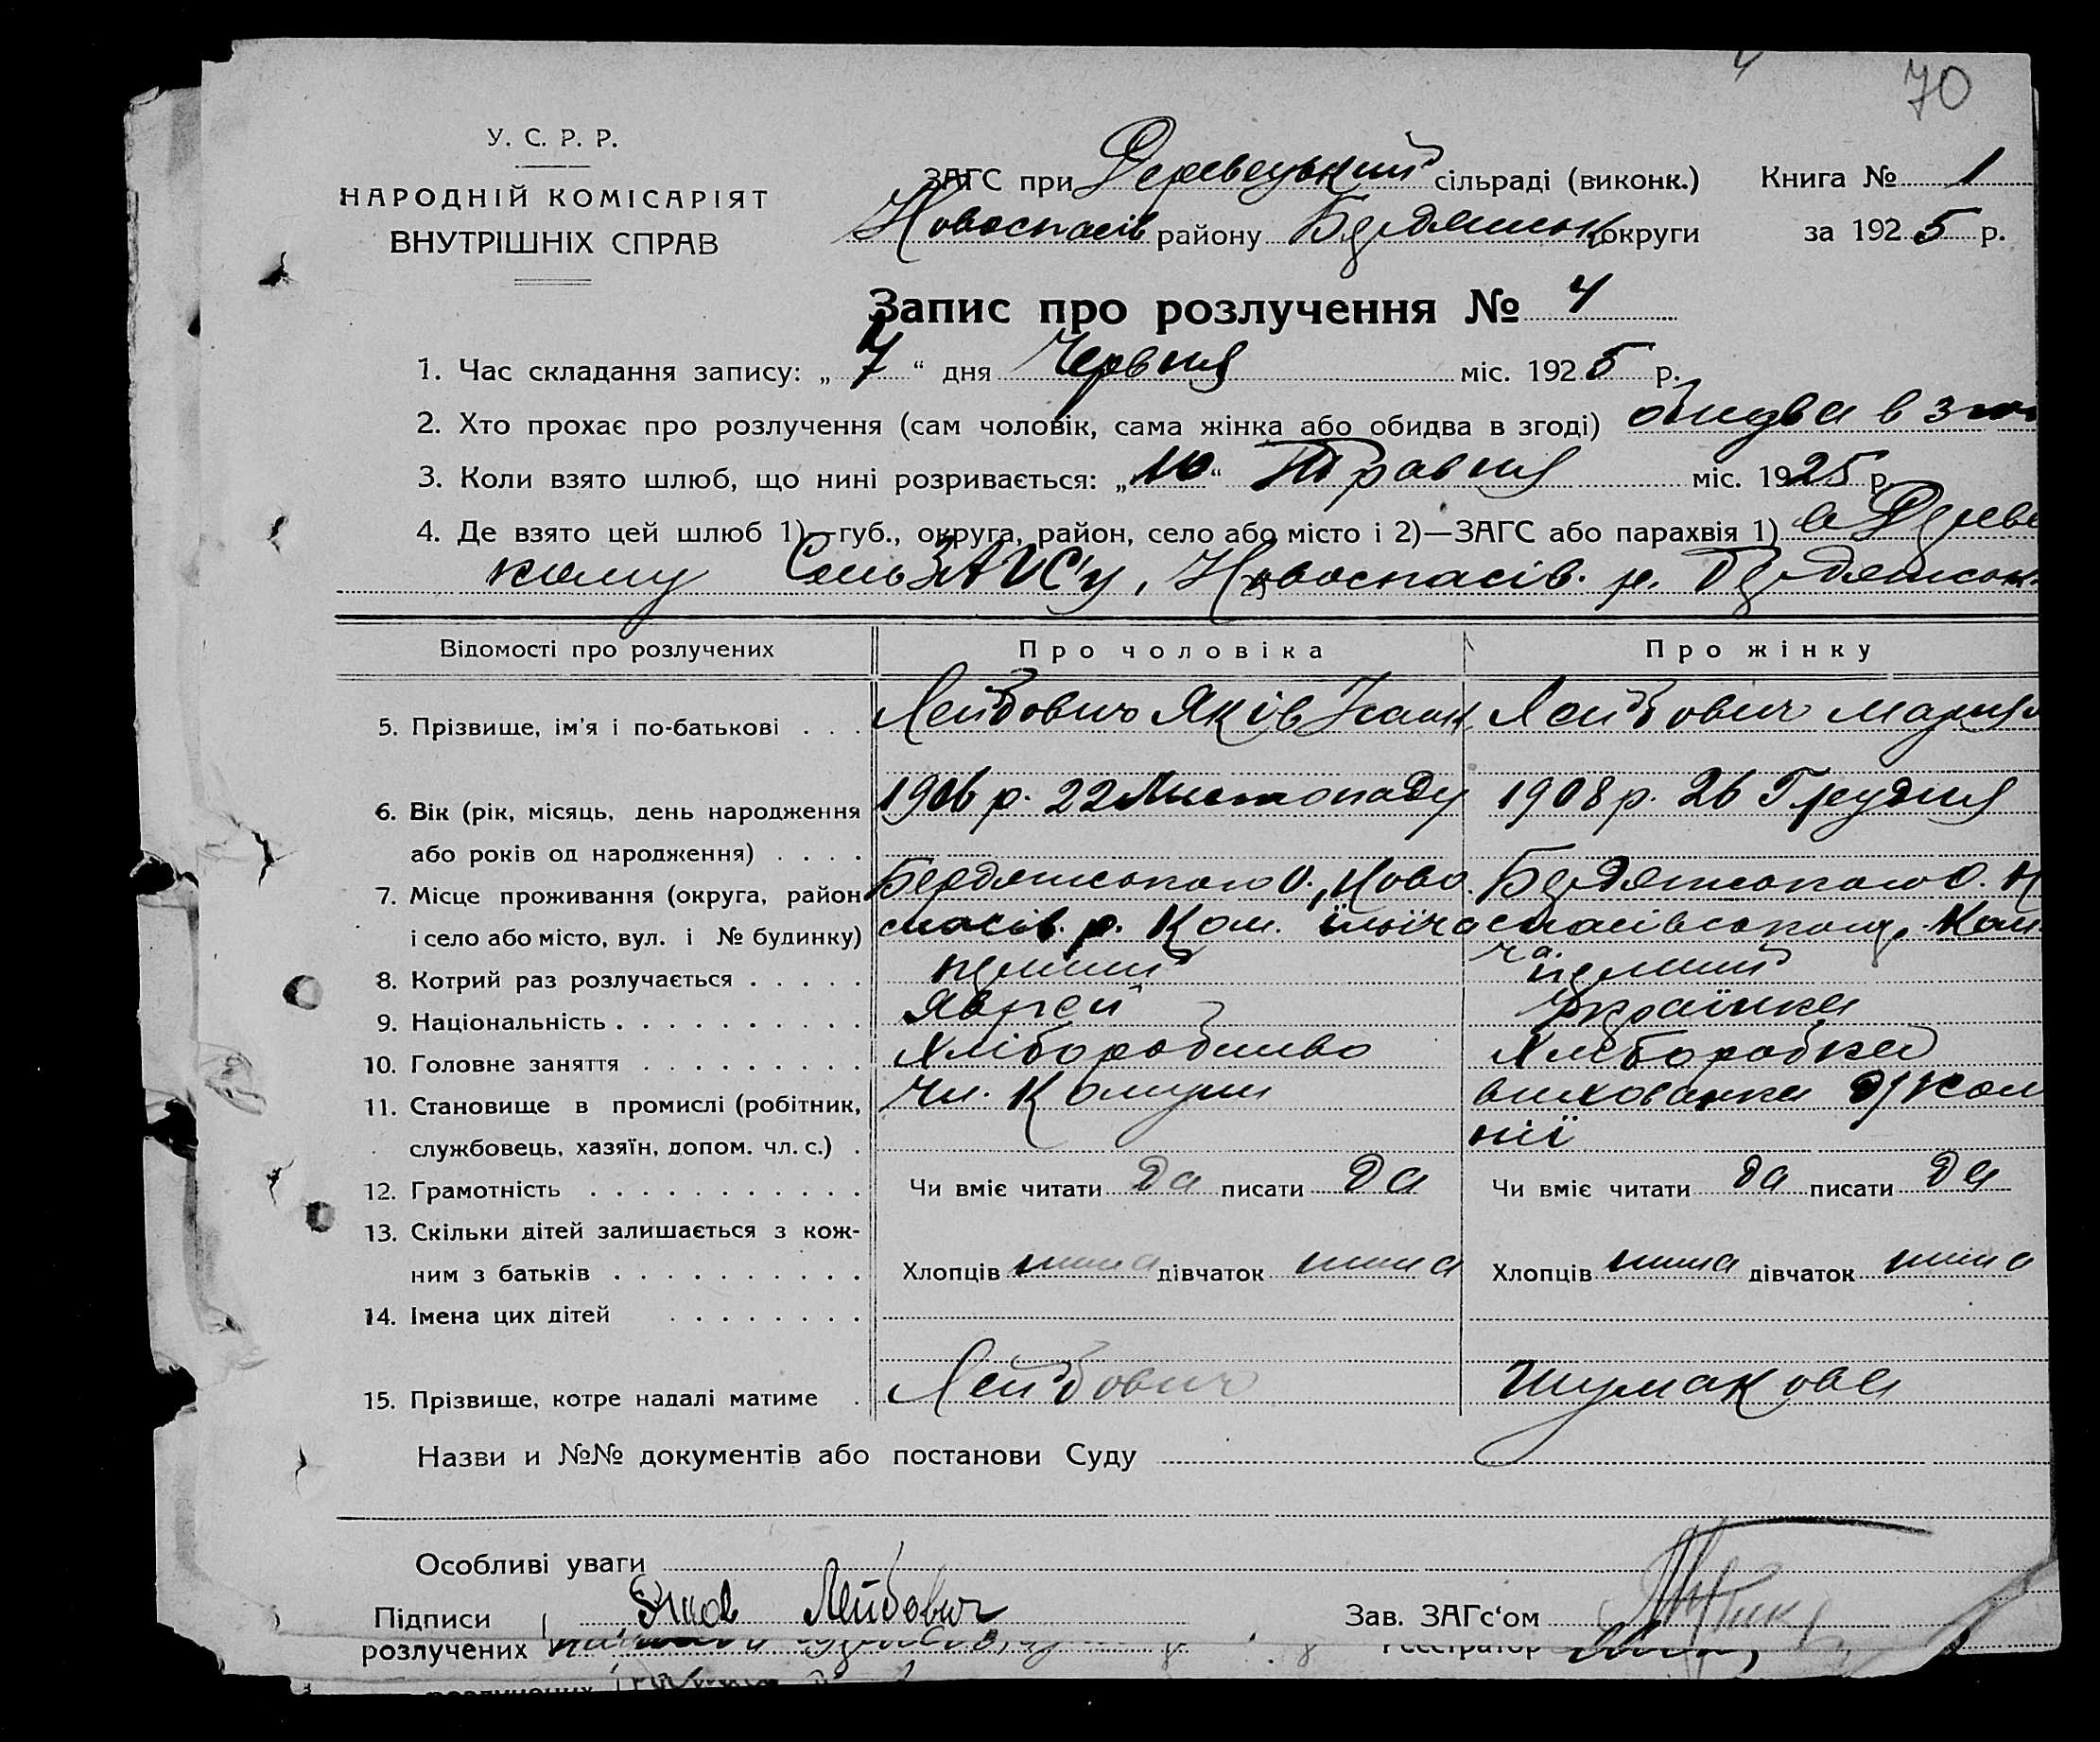 70
У. С. Р. Р.
НАРОДНІЙ КОМІСАРІЯТ
ВНУТРІШНІХ СПРАВ
ЗАГС при Деревецький сільраді (виконк.) Книга № 1
Новоспасів району Бердянськ округи за 1925 р.
Запис про розлучення № 4
1. Час складання запису: „7“ дня Червня міс. 1925 р.
2. Хто прохає про розлучення (сам чоловік, сама жінка або обидва в згоді) обидва в
3. Коли взято шлюб, що нині розривається: „10“ Травня міс. 1925 р.
4. Де взято цей шлюб 1)—губ., округа, район, село або місто і 2)—ЗАГС або парахвія 1) в
кому , Новоспасів. р. Бердянськ.
Відомості про розлучених Про чоловіка Про жінку
5. Прізвище, ім'я і по-батькові . . . Лейбович Яків Лейбович Мария
6. Вік (рік, місяць, день народження 1906 р. 22 Листопаду 1908 р. 26 Грудня
або років од народження) . . . .
7. Місце проживання (округа, район Бердянського О., Ново Бердянського О. Н
і село або місто, вул. і № будинку) спасів. р. Ком. Ілліча спасівського р. Ком.
ча.
8. Котрий раз розлучається . . . . . перший перший
9. Національність . . . . . . . . . . . Яврей Українка
10. Головне заняття . . . . . . . . . Хліборобство Хліборобка
11. Становище в промислі (робітник, Чл. Комуни вихованка д/кол
службовець, хазяїн, допом. чл. с.) . нії
12. Грамотність . . . . . . . . . . . . Чи вміє читати Да писати Да Чи вміє читати да писати Да
13. Скільки дітей залишається з кож-
ним з батьків . . . . . . . . . . . Хлопців нима дівчаток нима Хлопців нима дівчаток нима
14. Імена цих дітей . . . . . . . .
15. Прізвище, котре надалі матиме . Лейбович Шумакова
Назви и №№ документів або постанови Суду
Особливі уваги
Підписи Яков Лейбович Зав. ЗАГс‘ом
розлучених Реєстратор